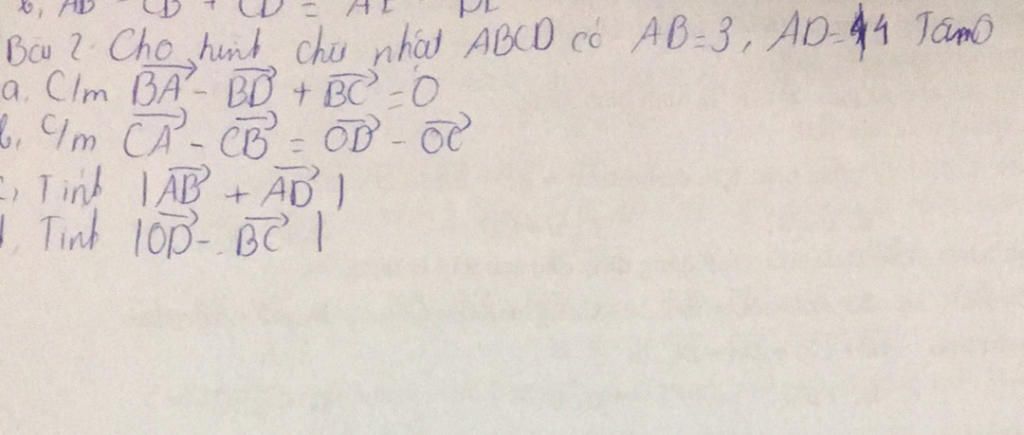 b, AB - CB + CD = AE - DE
Bài 2. Cho hình chữ nhật ABCD có AB=3, AD=4 Tâm O
a. C/m BA⃗ - BD⃗ + BC⃗ = 0
b, C/m CA⃗ - CB⃗ = OD⃗ - OC⃗
c, Tính |AB⃗ + AD⃗|
d, Tính |OD⃗ - BC⃗|